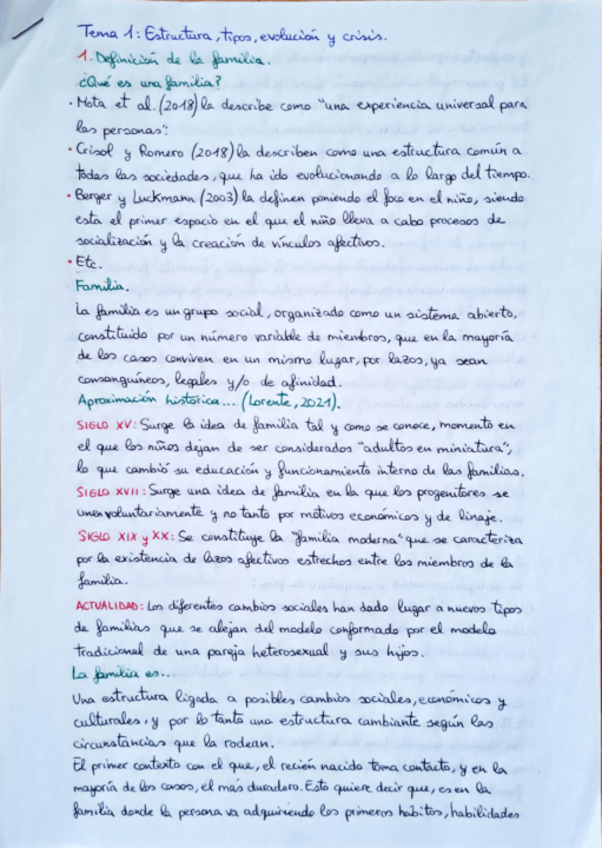 Tema 1: Estructura, tipos, evolución y crisis.
1. Definición de la familia.
¿Qué es una familia?
· Mota et al. (2018) la describe como "una experiencia universal para
las personas".
· Crisol y Romero (2018) la describen como una estructura común a
todas las sociedades, que ha ido evolucionando a lo largo del tiempo.
· Berger y Luckmann (2003) la definen poniendo el foco en el niño, siendo
esta el primer espacio en el que el niño lleva a cabo procesos de
socialización y la creación de vínculos afectivos.
· Etc.
Familia.
La familia es un grupo social, organizado como un sistema abierto,
constituido por un número variable de miembros, que en la mayoría
de los casos conviven en un mismo lugar, por lazos, ya sean
consanguíneos, legales y/o de afinidad.
Aproximación histórica... (Lorente, 2021).
SIGLO XV: Surge la idea de familia tal y como se conoce, momento en
el que los niños dejan de ser considerados "adultos en miniatura",
lo que cambió su educación y funcionamiento interno de las familias.
SIGLO XVII: Surge una idea de familia en la que los progenitores se
unen voluntariamente y no tanto por motivos económicos y de linaje.
SIGLO XIX y XX: Se constituye la "familia moderna" que se caracteriza
por la existencia de lazos afectivos estrechos entre los miembros de la
familia.
ACTUALIDAD: Los diferentes cambios sociales han dado lugar a nuevos tipos
de familias que se alejan del modelo conformado por el modelo
tradicional de una pareja heterosexual y sus hijos.
La familia es...
Una estructura ligada a posibles cambios sociales, económicos y
culturales, y por lo tanto una estructura cambiante según las
circunstancias que la rodean.
El primer contexto con el que, el recién nacido toma contacto, y en la
mayoría de los casos, el más duradero. Esto quiere decir que, es en la
familia donde la persona va adquiriendo los primeros hábitos, habilidades